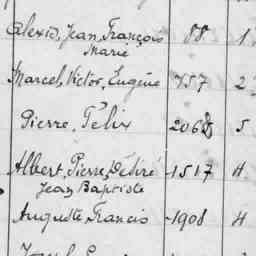 Alexis, Jean, François 88 1
Marie
Marcel, Victor, Eugène 757 2
Pierre, Félix 2068 5
Albert, Pierre, Désiré 1517 4
Jean Baptiste
Auguste, Francis 1908 4